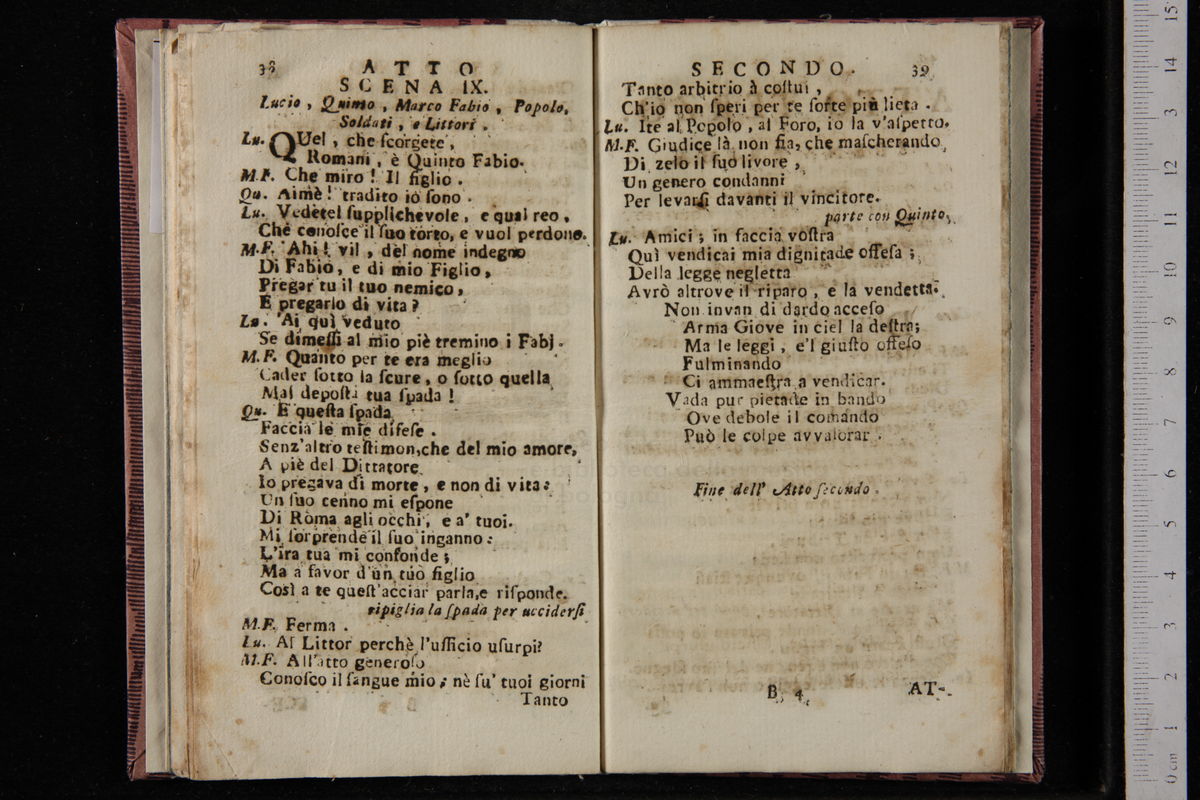 38 ATTO
SCENA IX.
Lucio, Quinto, Marco Fabio, Popolo,
Soldati, e Littori.
Lu. QUel, che ſcorgete,
Romani, è Quinto Fabio.
M.F. Che miro! Il figlio.
Qu. Aimè! tradito io ſono.
Lu. Vedetel ſupplichevole, e qual reo,
Che conoſce il ſuo torto, e vuol perdono.
M.F. Ahi! vil, del nome indegno
Di Fabio, e di mio Figlio,
Pregar tu il tuo nemico,
E pregarlo di vita?
Lu. Ai quì veduto
Se dimeſſi al mio piè tremino i Fabj.
M.F. Quanto per te era meglio
Cader ſotto la ſcure, o ſotto quella
Mal depoſta tua ſpada!
Qu. E queſta ſpada
Faccia le mie difeſe.
Senz'altro teſtimon, che del mio amore,
A piè del Dittatore
Io pregava di morte, e non di vita:
Un ſuo cenno mi eſpone
Di Roma agli occhi, e a' tuoi.
Mi ſorprende il ſuo inganno:
L'ira tua mi confonde;
Ma a favor d'un tuo figlio
Così a te queſt'acciar parla, e riſponde.
ripiglia la ſpada per ucciderſi
M.F. Ferma.
Lu. Al Littor perchè l'ufficio uſurpi?
M.F. All'atto generoſo
Conoſco il ſangue mio; nè ſu' tuoi giorni
Tanto
SECONDO. 39
Tanto arbitrio à coſtui,
Ch'io non ſperi per te ſorte più lieta.
Lu. Ite al Popolo, al Foro, io la v'aſpetto.
M.F. Giudice là non fia, che maſcherando
Di zelo il ſuo livore,
Un genero condanni
Per levarſi davanti il vincitore.
parte con Quinto.
Lu. Amici; in faccia voſtra
Quì vendicai mia dignitade offeſa;
Della legge negletta
Avrò altrove il riparo, e la vendetta.
Non invan di dardo acceſo
Arma Giove in ciel la deſtra;
Ma le leggi, e'l giuſto offeſo
Fulminando
Ci ammaeſtra a vendicar.
Vada pur pietade in bando
Ove debole il comando
Può le colpe avvalorar.
Fine dell' Atto ſecondo.
B 4 AT-